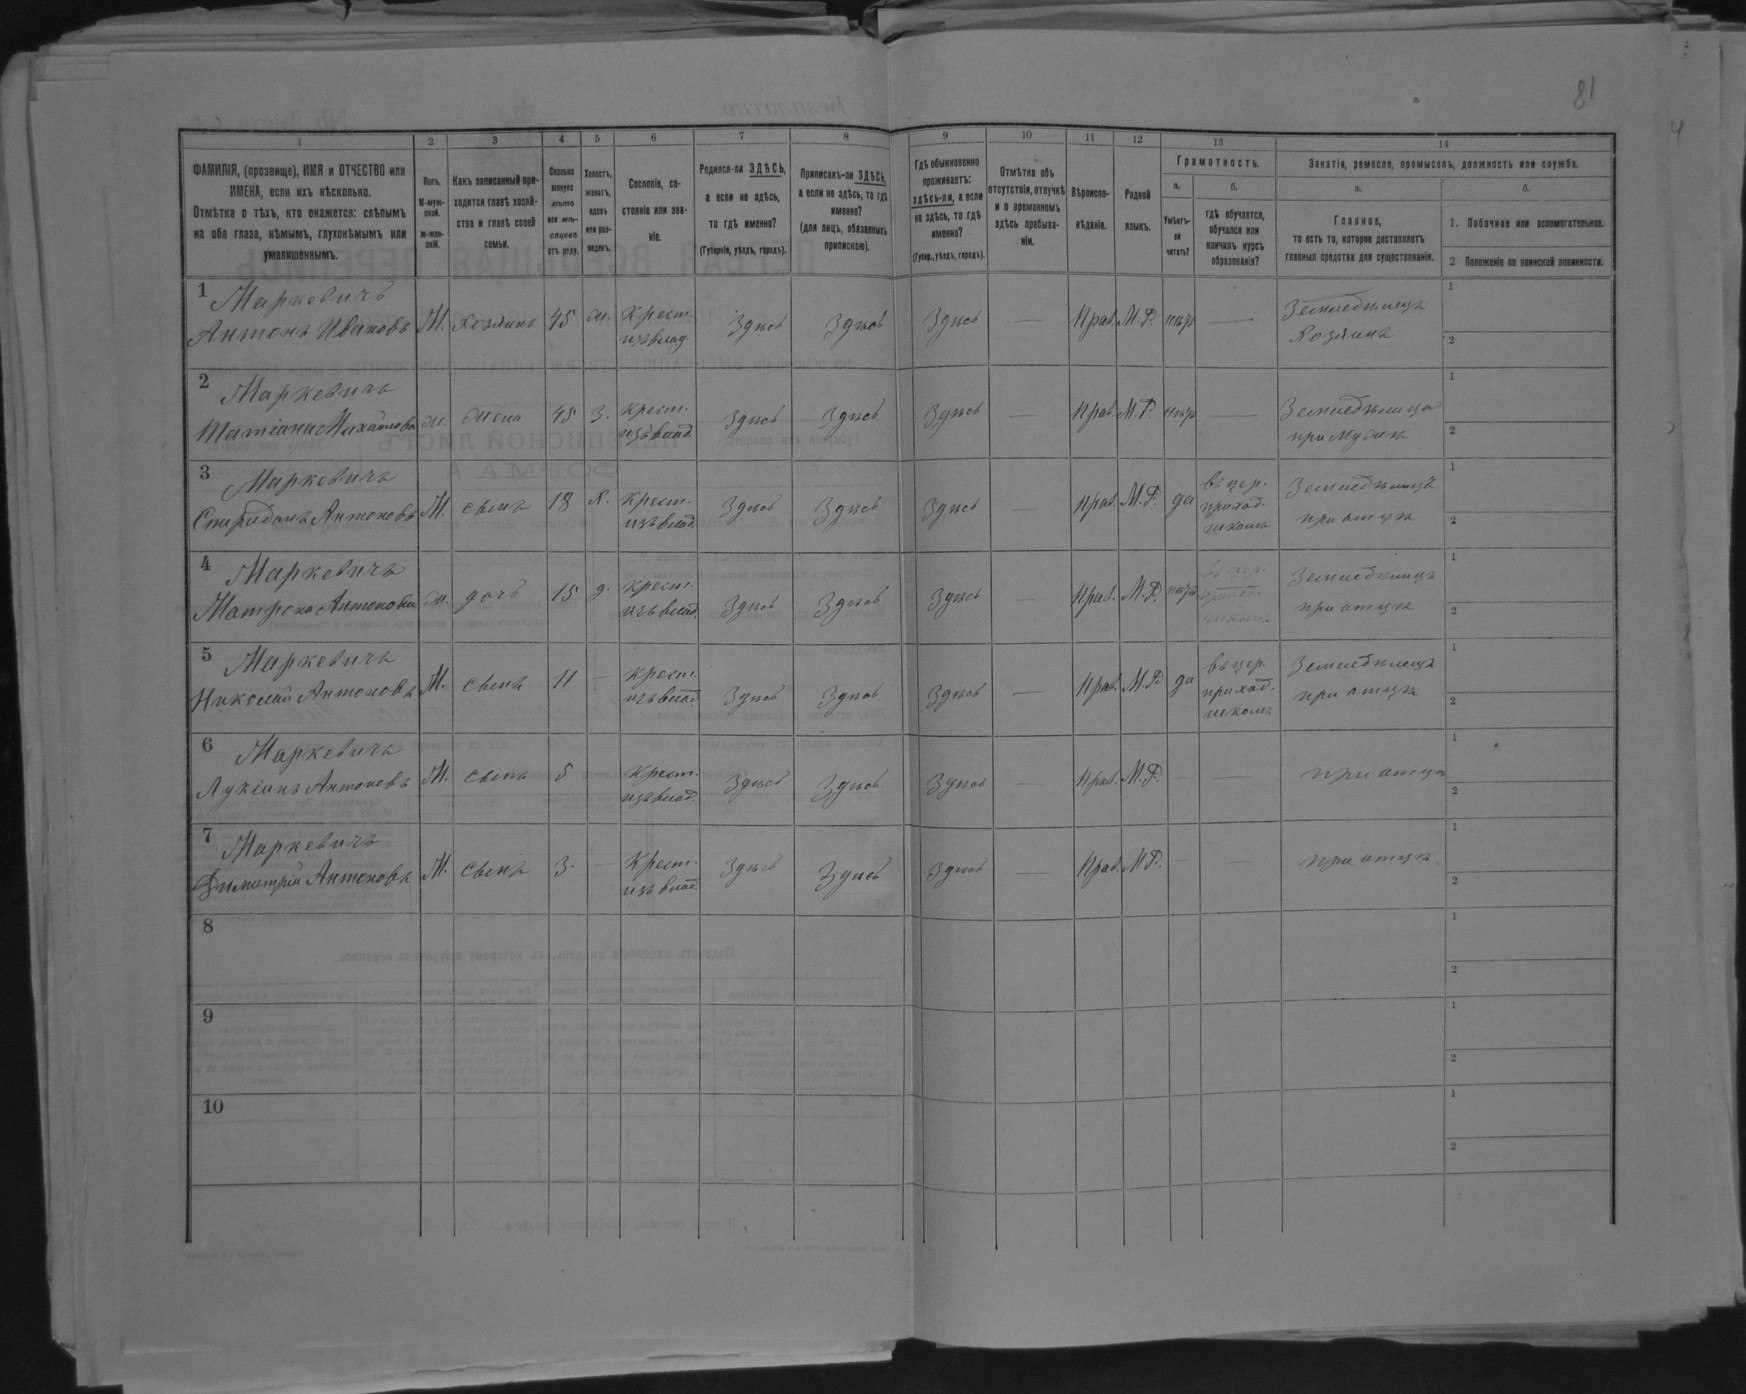 81
1 2 3 4 5 6 7 8 9 10 11 12 13 14
ФАМИЛІЯ, (прозвище), ИМЯ и ОТЧЕСТВО или
ИМЕНА, если ихъ нѣсколько.
Отмѣтка о тѣхъ, кто окажется: слѣпымъ
на оба глаза, нѣмымъ, глухонѣмымъ или
умалишеннымъ.
Полъ.
М-муж-
ской.
ж-жен-
скій.
Какъ записанный при-
ходится главѣ хозяй-
ства и главѣ своей
семьи.
Сколько
минуло
лѣтъ
или мѣ-
сяцевъ
отъ роду.
Холостъ,
женатъ,
вдовъ
или раз-
веденъ.
Сословіе, со-
стояніе или зва-
ніе.
Родился-ли ЗДѢСЬ,
а если не здѣсь,
то гдѣ именно?
(Губернія, уѣздъ, городъ).
Приписанъ-ли ЗДѢСЬ,
а если не здѣсь, то гдѣ
именно?
(для лицъ, обязанныхъ
припискою).
Гдѣ обыкновенно
проживаетъ:
здѣсь-ли, а если
не здѣсь, то гдѣ
именно?
(Губер., уѣздъ, городъ).
Отмѣтка объ
отсутствіи, отлучкѣ
и о временномъ
здѣсь пребыва-
ніи.
Вѣроиспо-
вѣданіе.
Родной
языкъ.
Грамотность.
а.
Умѣетъ-
ли
читать?
б.
гдѣ обучается,
обучался или
кончилъ курсъ
образованія?
Занятія, ремесло, промыселъ, должность или служба.
а.
Главное,
то есть то, которое доставляетъ
главныя средства для существованія.
б.
1. Побочное или вспомогательное.
2 Положеніе по воинской повинности.
1 Маркевичъ
Антонъ Ивановъ М. хозяинъ 45 ж. Крест. изъ влад. Здѣсь Здѣсь Здѣсь — Прав. М.Р. нѣтъ — Земледѣлецъ
Хозяинъ
1
2
2 Маркевичъ
Татіана Михайлова ж. жена 45 З. крест. изъ влад. Здѣсь Здѣсь Здѣсь — Прав. М.Р. нѣтъ — Земледѣлица
при мужѣ
1
2
3 Маркевичъ
Спиридонъ Антоновъ М. сынъ 18 х. крест. изъ влад. Здѣсь Здѣсь Здѣсь — Прав. М.Р. да въ цер. приход. школѣ Земледѣлецъ
при отцѣ
1
2
4 Маркевичъ
Матрона Антонова ж. дочь 15 д. крест. изъ влад. Здѣсь Здѣсь Здѣсь — Прав. М.Р. нѣтъ въ цер. приход. школѣ Земледѣлицъ
при отцѣ
1
2
5 Маркевичъ
Николай Антоновъ М. сынъ 11 — крест. изъ влад. Здѣсь Здѣсь Здѣсь — Прав. М.Р. да въ цер. приход. школѣ Земледѣлецъ
при отцѣ
1
2
6 Маркевичъ
Лукіанъ Антоновъ М. сынъ 5 крест. изъ влад. Здѣсь Здѣсь Здѣсь — Прав. М.Р. — — при отцѣ
1
2
7 Маркевичъ
Димитрій Антоновъ М. сынъ 3. — Крест. изъ влад. Здѣсь Здѣсь Здѣсь — Прав. М.Р. — — при отцѣ
1
2
8
1
2
9
1
2
10
1
2